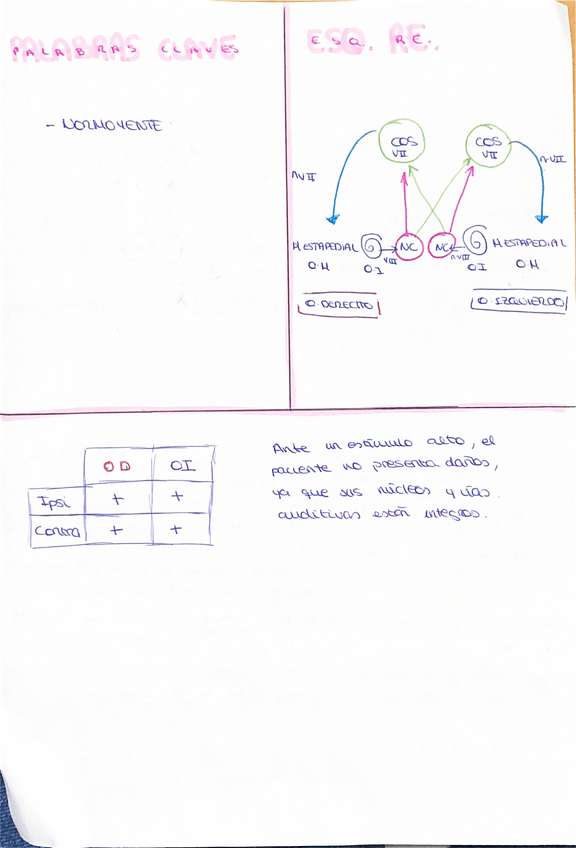 PALABRAS CLAVES
- NORMOYENTE
ESQ. RE.
COS
VII
COS
VII
nVII
nVII
M ESTAPEDIAL
NC
NC
M ESTAPEDIAL
nVIII
nVIII
O.M
O.I
O I
O.M
O. DERECHO
O. IZQUIERDO
OD OI
Ipsi + +
Contra + +
Ante un estímulo alto, el
paciente no presenta daños,
ya que sus núcleos y vías
auditivas están íntegros.